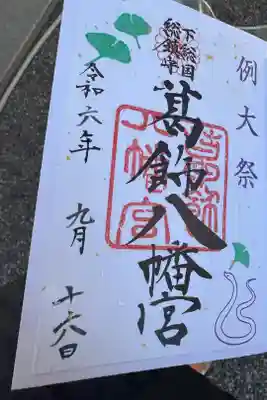 例大祭
下総国
総鎮守
葛飾八幡宮
令和六年 九月 十六日
葛飾
八幡宮